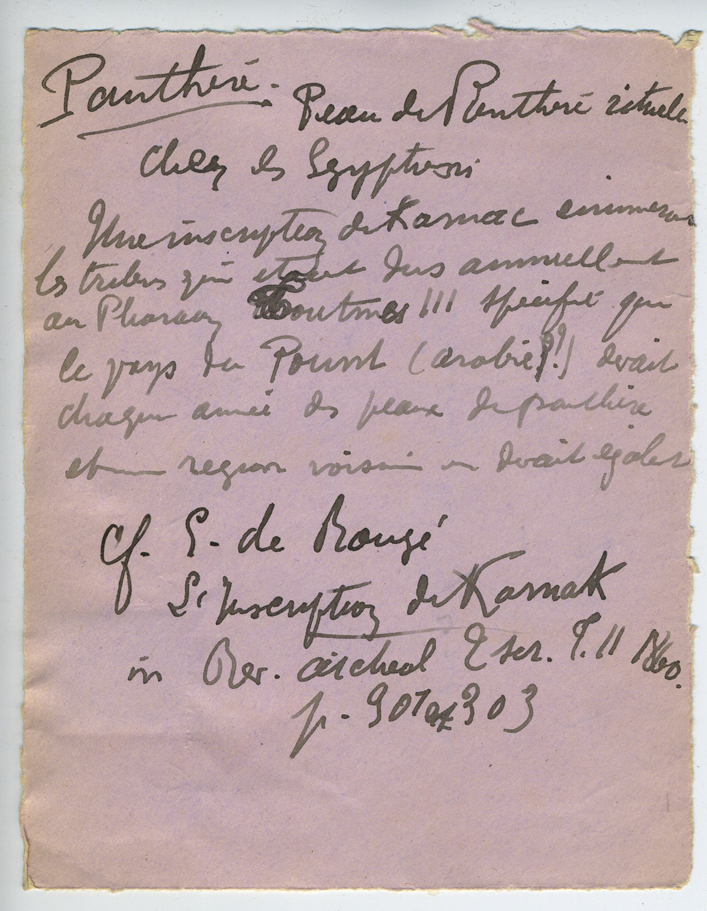 Panthère. Peau de Panthère rituelle
chez les Egyptiens
Une inscription de Karnac enumerant
les tributs qui etaient dus annuellement
au Pharaon Toutmes III spécifie que
le pays du Pount (arabie?!) devait
chaque année des peaux de panthère
et une region voisine en devait égalemt
cf. E. de Rougé
L'Inscription de Karnak
in Rev. archeol 2 ser. T. II 1860.
p. et 303